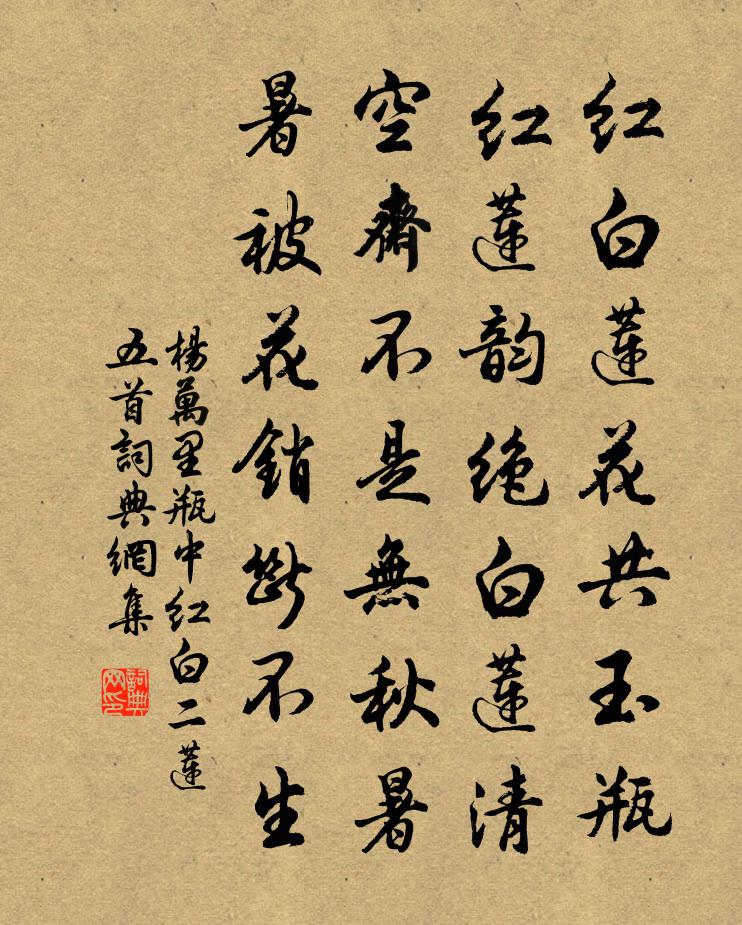 红白蓮花共玉瓶
红蓮韵絶白蓮清
空齋不是無秋暑
暑被花銷斷不生
楊萬里瓶中红白二蓮
五首詞典網集
詞典网印